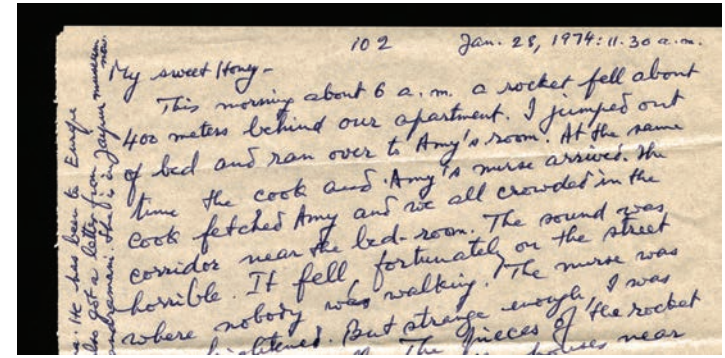 102 Jan. 28, 1974: 11.30 a.m.
My sweet Honey-
This morning about 6 a.m. a rocket fell about
400 meters behind our apartment. I jumped out
of bed and ran over to Amy's room. At the same
time the cook and Amy's nurse arrived. The
cook fetched Amy and we all crowded in the
corridor near the bed-room. The sound was
horrible. It fell, fortunately on the street
where nobody was walking. The nurse was
frightened. But strange enough, I was
The pieces of the rocket
houses near
He has been to Europe
also got a letter from
is in Jaypur museum
now.